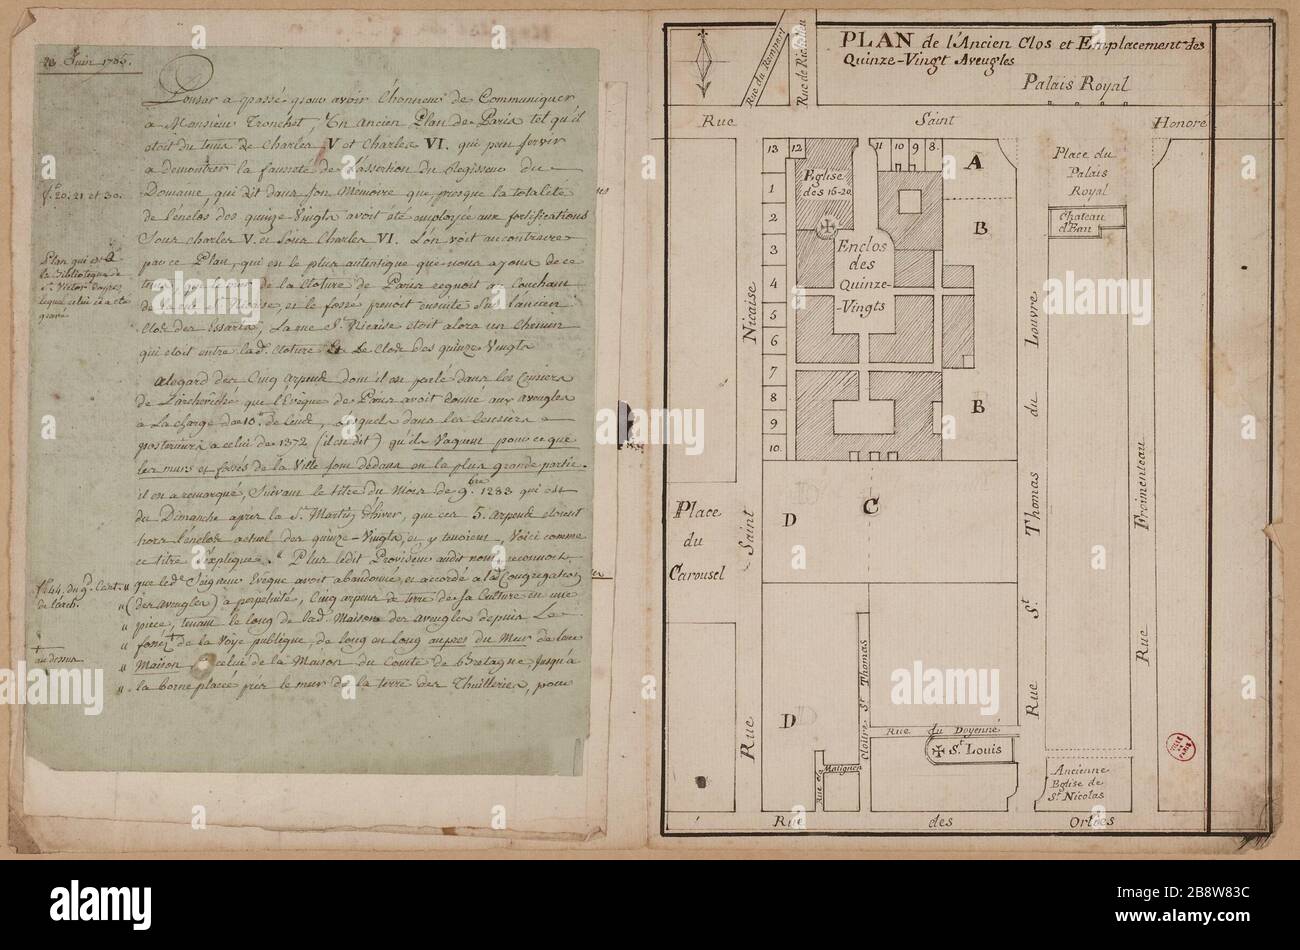 Juin 1785.
Pousar a passé pour avoir l'honneur de Communiquer
a Monsieur Tronchet, Un ancien Plan de Paris tel qu'il
etoit du tems de Charles V et Charles VI, qui peu servir
a demontrer la fausseté de l'assertion du Regisseur du
fo. 20. 21 et 30.
Domaine, qui dit dans son Memoire que presque la totalité
de l'enclos des quinze-Vingts avoit été employée aux fortifications
Sous Charles V. et Sous Charles VI. L'on voit au contraire
Plan qui est a
la Biblioteque de
St. Victor
gravé
par ce Plan, qui en le plus autentique que nous ayons de ce
tems, que le mur de la Cloture de Paris regnoit au Couchant
de la rue St. Nicaise, et le fossé prenoit ensuite sur l'ancien
Clos des Essarts, La rue St. Nicaise etoit alors un Chemin
qui etoit entre lad. Cloture et Le Clos des quinze Vingts
a legard des Cinq arpents dont il en parlé dans les Censiers
de l'archevêché que l'Evêque de Paris avoit donné aux aveugles
a La charge de 10s. de Cens, Lequel dans les Censiers
posterieurs a celui de 1372 (il en dit) qu'ils Vaquent pour ce que
les murs et fossés de la Ville sont dedans en la plus grande partie.
il en a remarqué, Suivant le titre du Mois de 9bre. 1283 qui est
du Dimanche après la St. Martin d'hiver, que ces 5. arpents etoient
hors l'enclos actuel des quinze-Vingts, et y tenoient, Voici comme
ce titre s'explique. " Plus ledit Proviseur audit nom reconnoit
fo. 44. du 9e. Cart.
de l'arch.
" que led. Seigneur Evêque avoit abandonné, et accordé a lad. Congregation
" (des aveugles) a perpetuité, Cinq arpens de terre de sa Culture en une
" piece, tenant le long de lad. Maison des aveugles depuis Le
" fossé + de la Voye publique, de long en long auprès du Mur de leur
+
au dessus
" Maison, a celui de la Maison du Comte de Bretagne jusqu'a
" la borne placée près le mur de la terre des Thuilleries, pour
PLAN de l'Ancien Clos et Emplacement des
Quinze-Vingt Aveugles
Rue du Rempart
Rue de Richelieu
Palais Royal
Rue Saint Honore
13 12 11 10 9 8
A
Place du
Palais
Royal
Eglise
des 15-20
1
2
3
4
5
6
7
8
9
10
Chateau
d'Eau
B
Enclos
des
Quinze-
-Vingts
B
Rue Saint Nicaise
Rue St. Thomas du Louvre
Rue Froimenteau
Place
du
Carousel
D
C
D
Cloitre St Thomas
Rue du Doyenné
St. Louis
Rue de Matignon
Ancienne
Eglise de
St. Nicolas
VILLE DE PARIS
Rue des Orties
alamy
Image ID: 2B8W83C
www.alamy.com